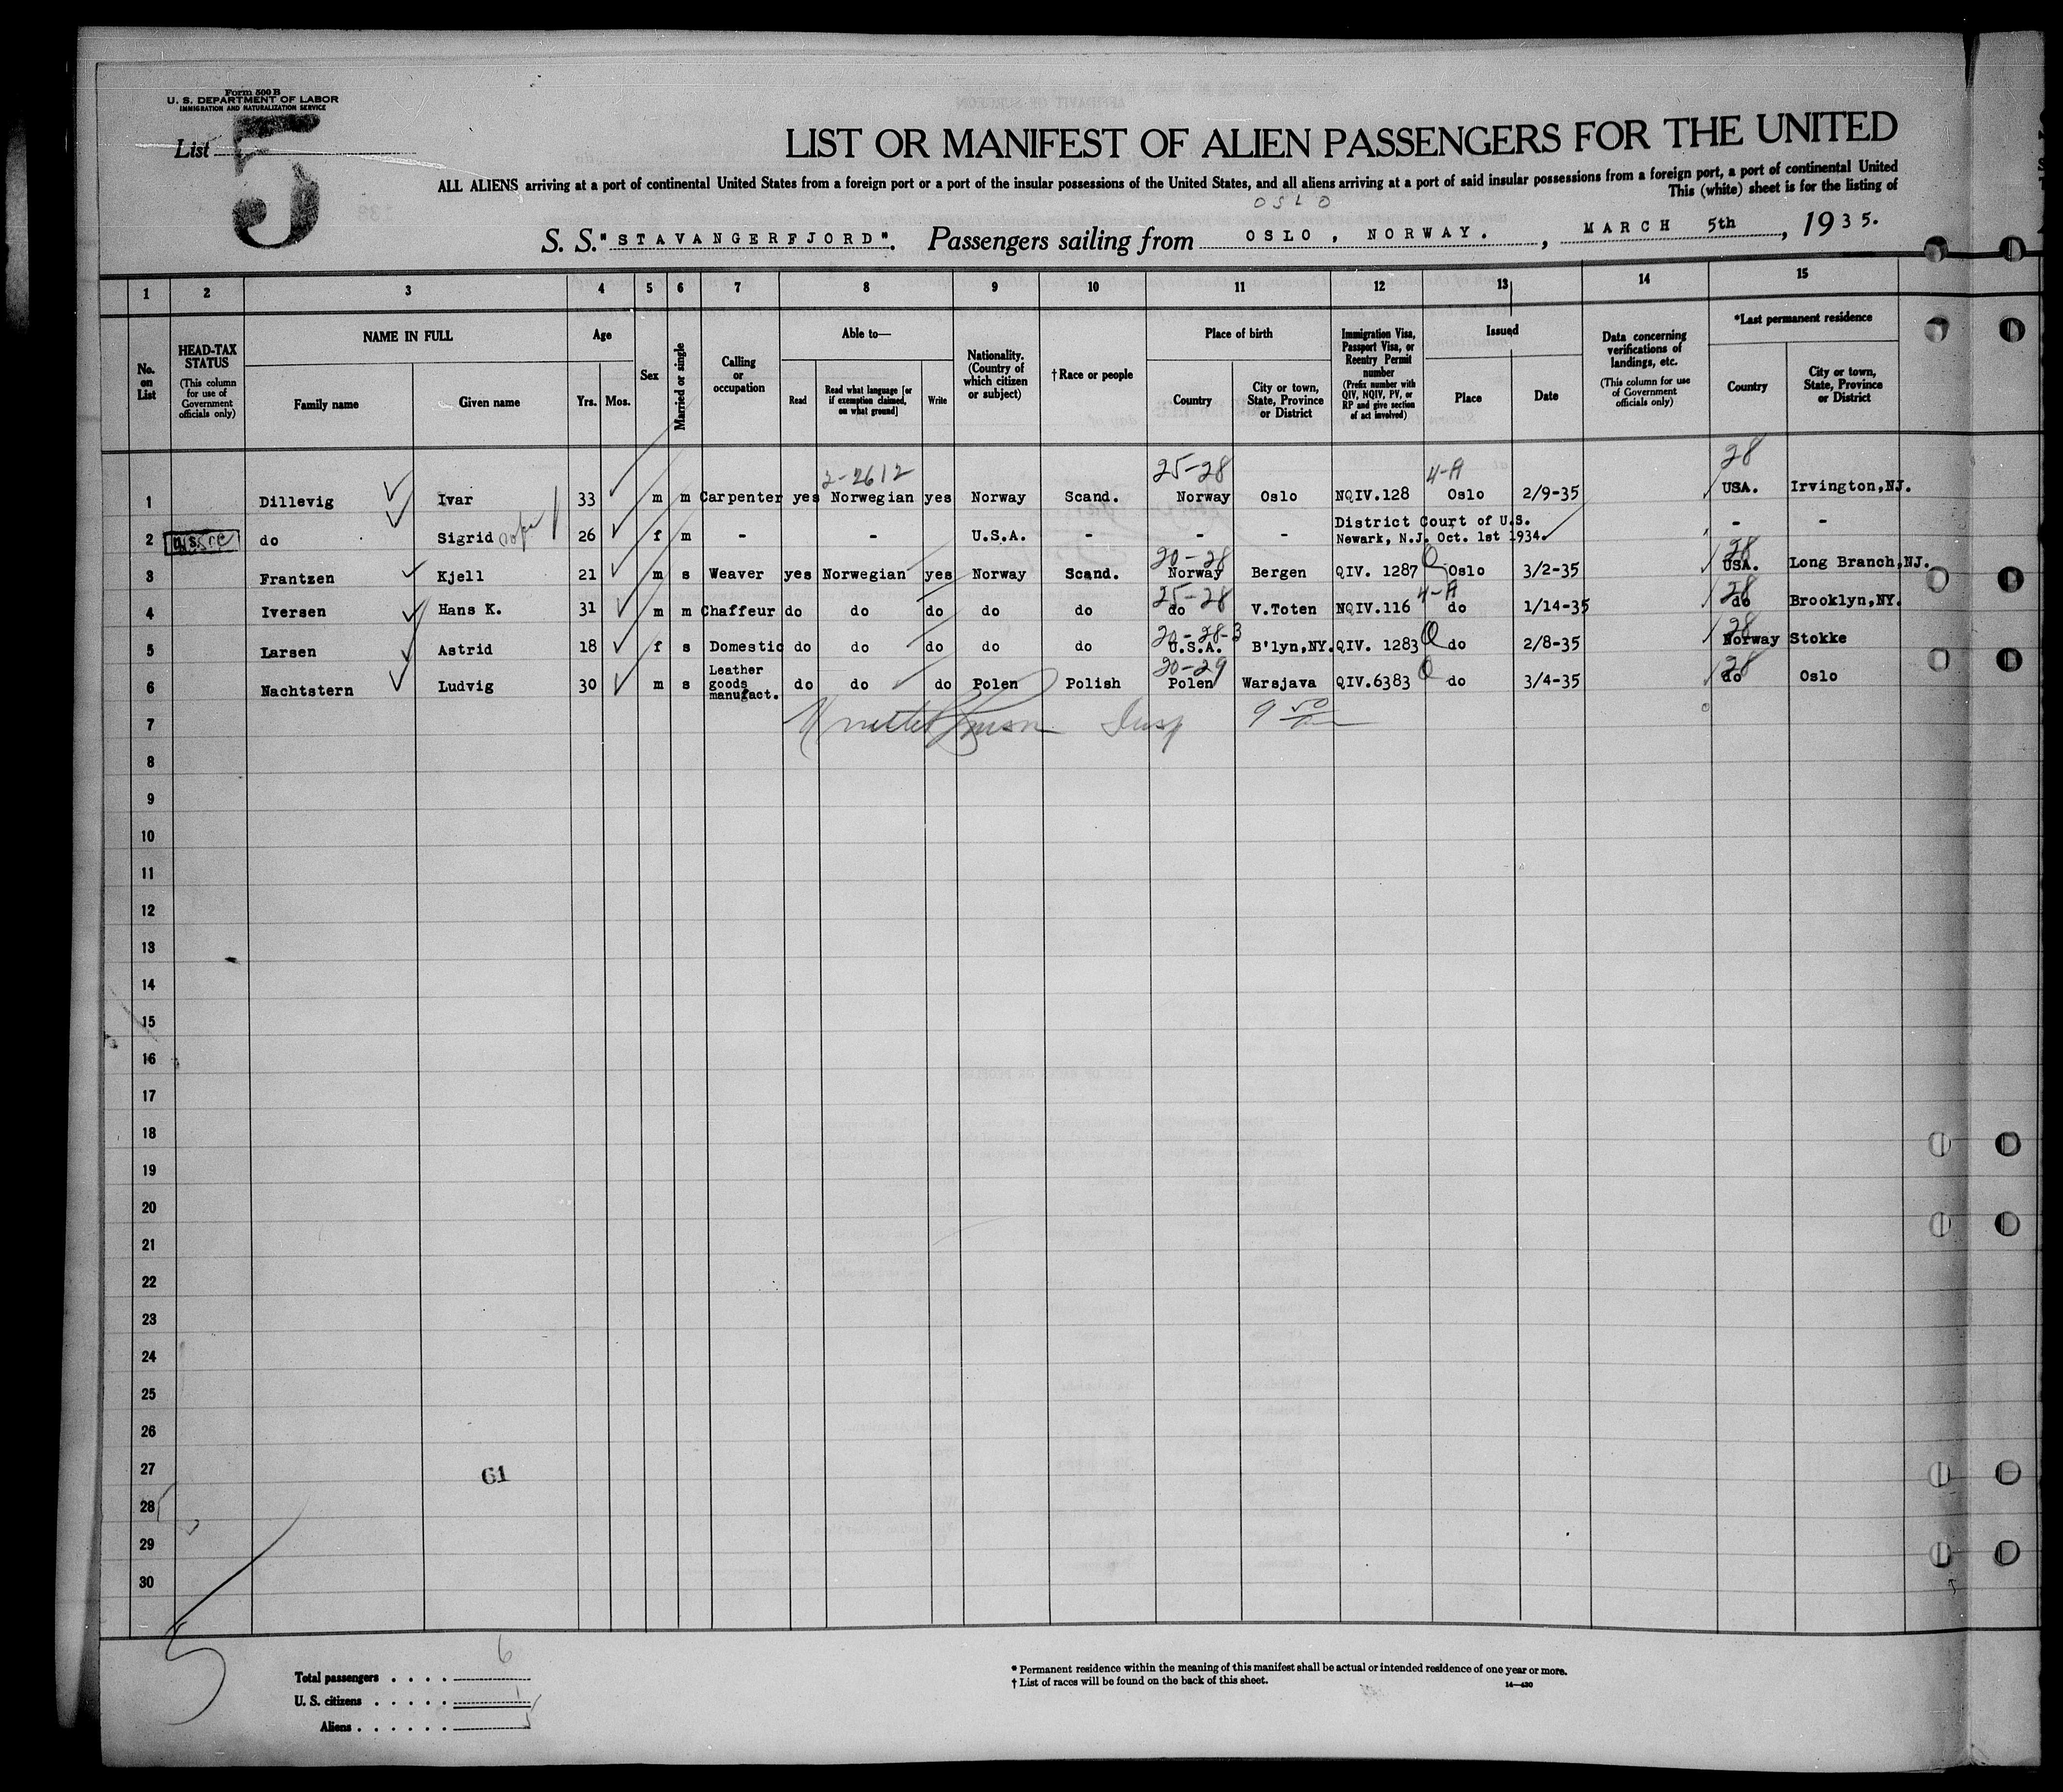 Form 500 B
U. S. DEPARTMENT OF LABOR
IMMIGRATION AND NATURALIZATION SERVICE
List 5
LIST OR MANIFEST OF ALIEN PASSENGERS FOR THE UNITED
ALL ALIENS arriving at a port of continental United States from a foreign port or a port of the insular possessions of the United States, and all aliens arriving at a port of said insular possessions from a foreign port, a port of continental United
This (white) sheet is for the listing of
OSLO
S. S. "STAVANGERFJORD". Passengers sailing from OSLO, NORWAY., MARCH 5th, 1935.
1 2 3 4 5 6 7 8 9 10 11 12 13 14 15
No. on List
HEAD-TAX STATUS (This column for use of Government officials only)
NAME IN FULL
Family name
Given name
Age
Yrs. Mos.
Sex
Married or single
Calling or occupation
Able to—
Read
Read what language [or if exemption claimed, on what ground]
Write
Nationality. (Country of which citizen or subject)
†Race or people
Place of birth
Country
City or town, State, Province or District
Immigration Visa, Passport Visa, or Reentry Permit number (Prefix number with QIV, NQIV, PV, or RP and give section of act involved)
Issued
Place
Date
Data concerning verifications of landings, etc. (This column for use of Government officials only)
*Last permanent residence
Country
City or town, State, Province or District
2-2612 25-28 4-A 28
1 Dillevig Ivar 33 m m Carpenter yes Norwegian yes Norway Scand. Norway Oslo NQIV.128 Oslo 2/9-35 USA. Irvington,NJ.
2 do Sigrid 26 f m - - U.S.A. - - - District Court of U.S. Newark, N.J. Oct. 1st 1934. - -
20-28 28
3 Frantzen Kjell 21 m s Weaver yes Norwegian yes Norway Scand. Norway Bergen QIV. 1287 Oslo 3/2-35 USA. Long Branch,NJ.
25-28 4-A 28
4 Iversen Hans K. 31 m m Chaffeur do do do do do do V.Toten NQIV.116 do 1/14-35 do Brooklyn,NY.
20-28-3 28
5 Larsen Astrid 18 f s Domestic do do do do do U.S.A. B'lyn,NY. QIV. 1283 do 2/8-35 Norway Stokke
20-29 28
6 Nachtstern Ludvig 30 m s Leather goods manufact. do do do Polen Polish Polen Warsjava QIV.6383 do 3/4-35 do Oslo
7 Insp 9 50
8
9
10
11
12
13
14
15
16
17
18
19
20
21
22
23
24
25
26
27 61
28
29
30
Total passengers . . . . 6
U. S. citizens . . . . . 1
Aliens . . . . . . 5
* Permanent residence within the meaning of this manifest shall be actual or intended residence of one year or more.
† List of races will be found on the back of this sheet.
14—430